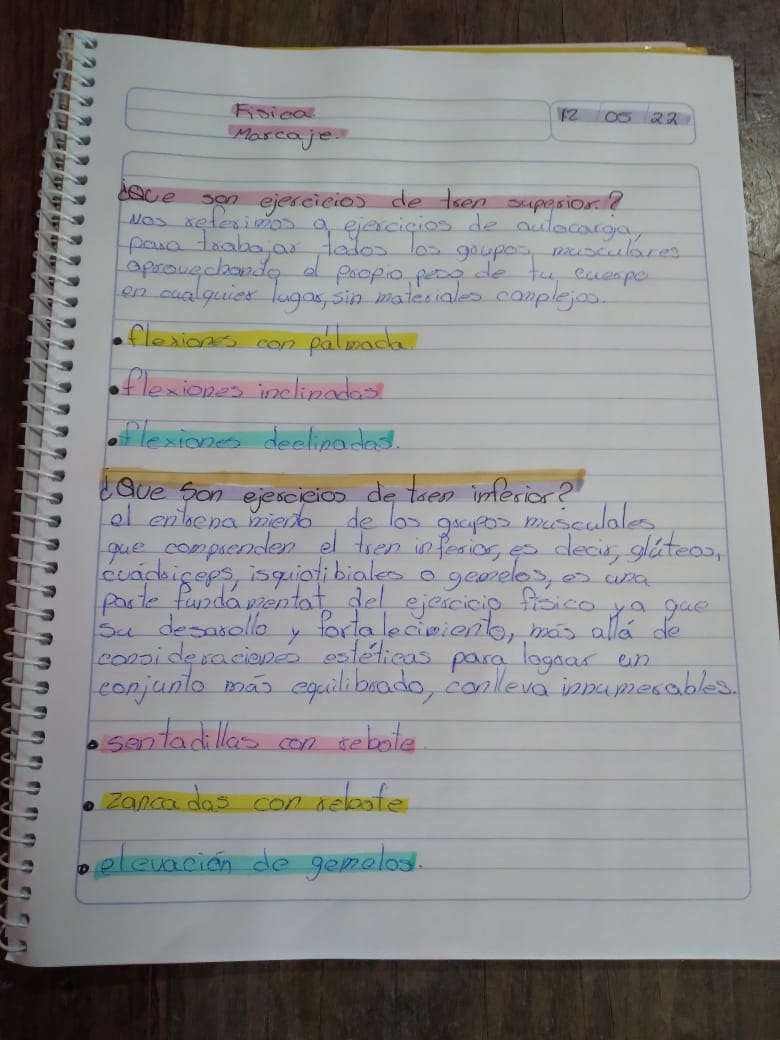 Fisica.
Marcaje.
12 05 22
¿Que son ejercicios de tren superior.?
Nos referimos a ejercicios de autocarga,
para trabajar todos los grupos musculares
aprovechando el propio peso de tu cuerpo
en cualquier lugar, sin materiales complejos.
• flexiones con palmada.
• flexiones inclinadas
• flexiones declinadas.
¿Que Son ejercicios de tren inferior?
el entrena miento de los grupos musculales
que comprenden el tren inferior, es decir, glúteos,
cuádriceps, isquiotibiales o gemelos, es una
parte fundamental del ejercicio físico ya que
su desarollo y fortalecimiento, más allá de
consideraciones estéticas para lograr un
conjunto más equilibrado, conlleva innumerables.
• sentadillas con rebote.
• zancadas con rebote
• elevación de gemelos.